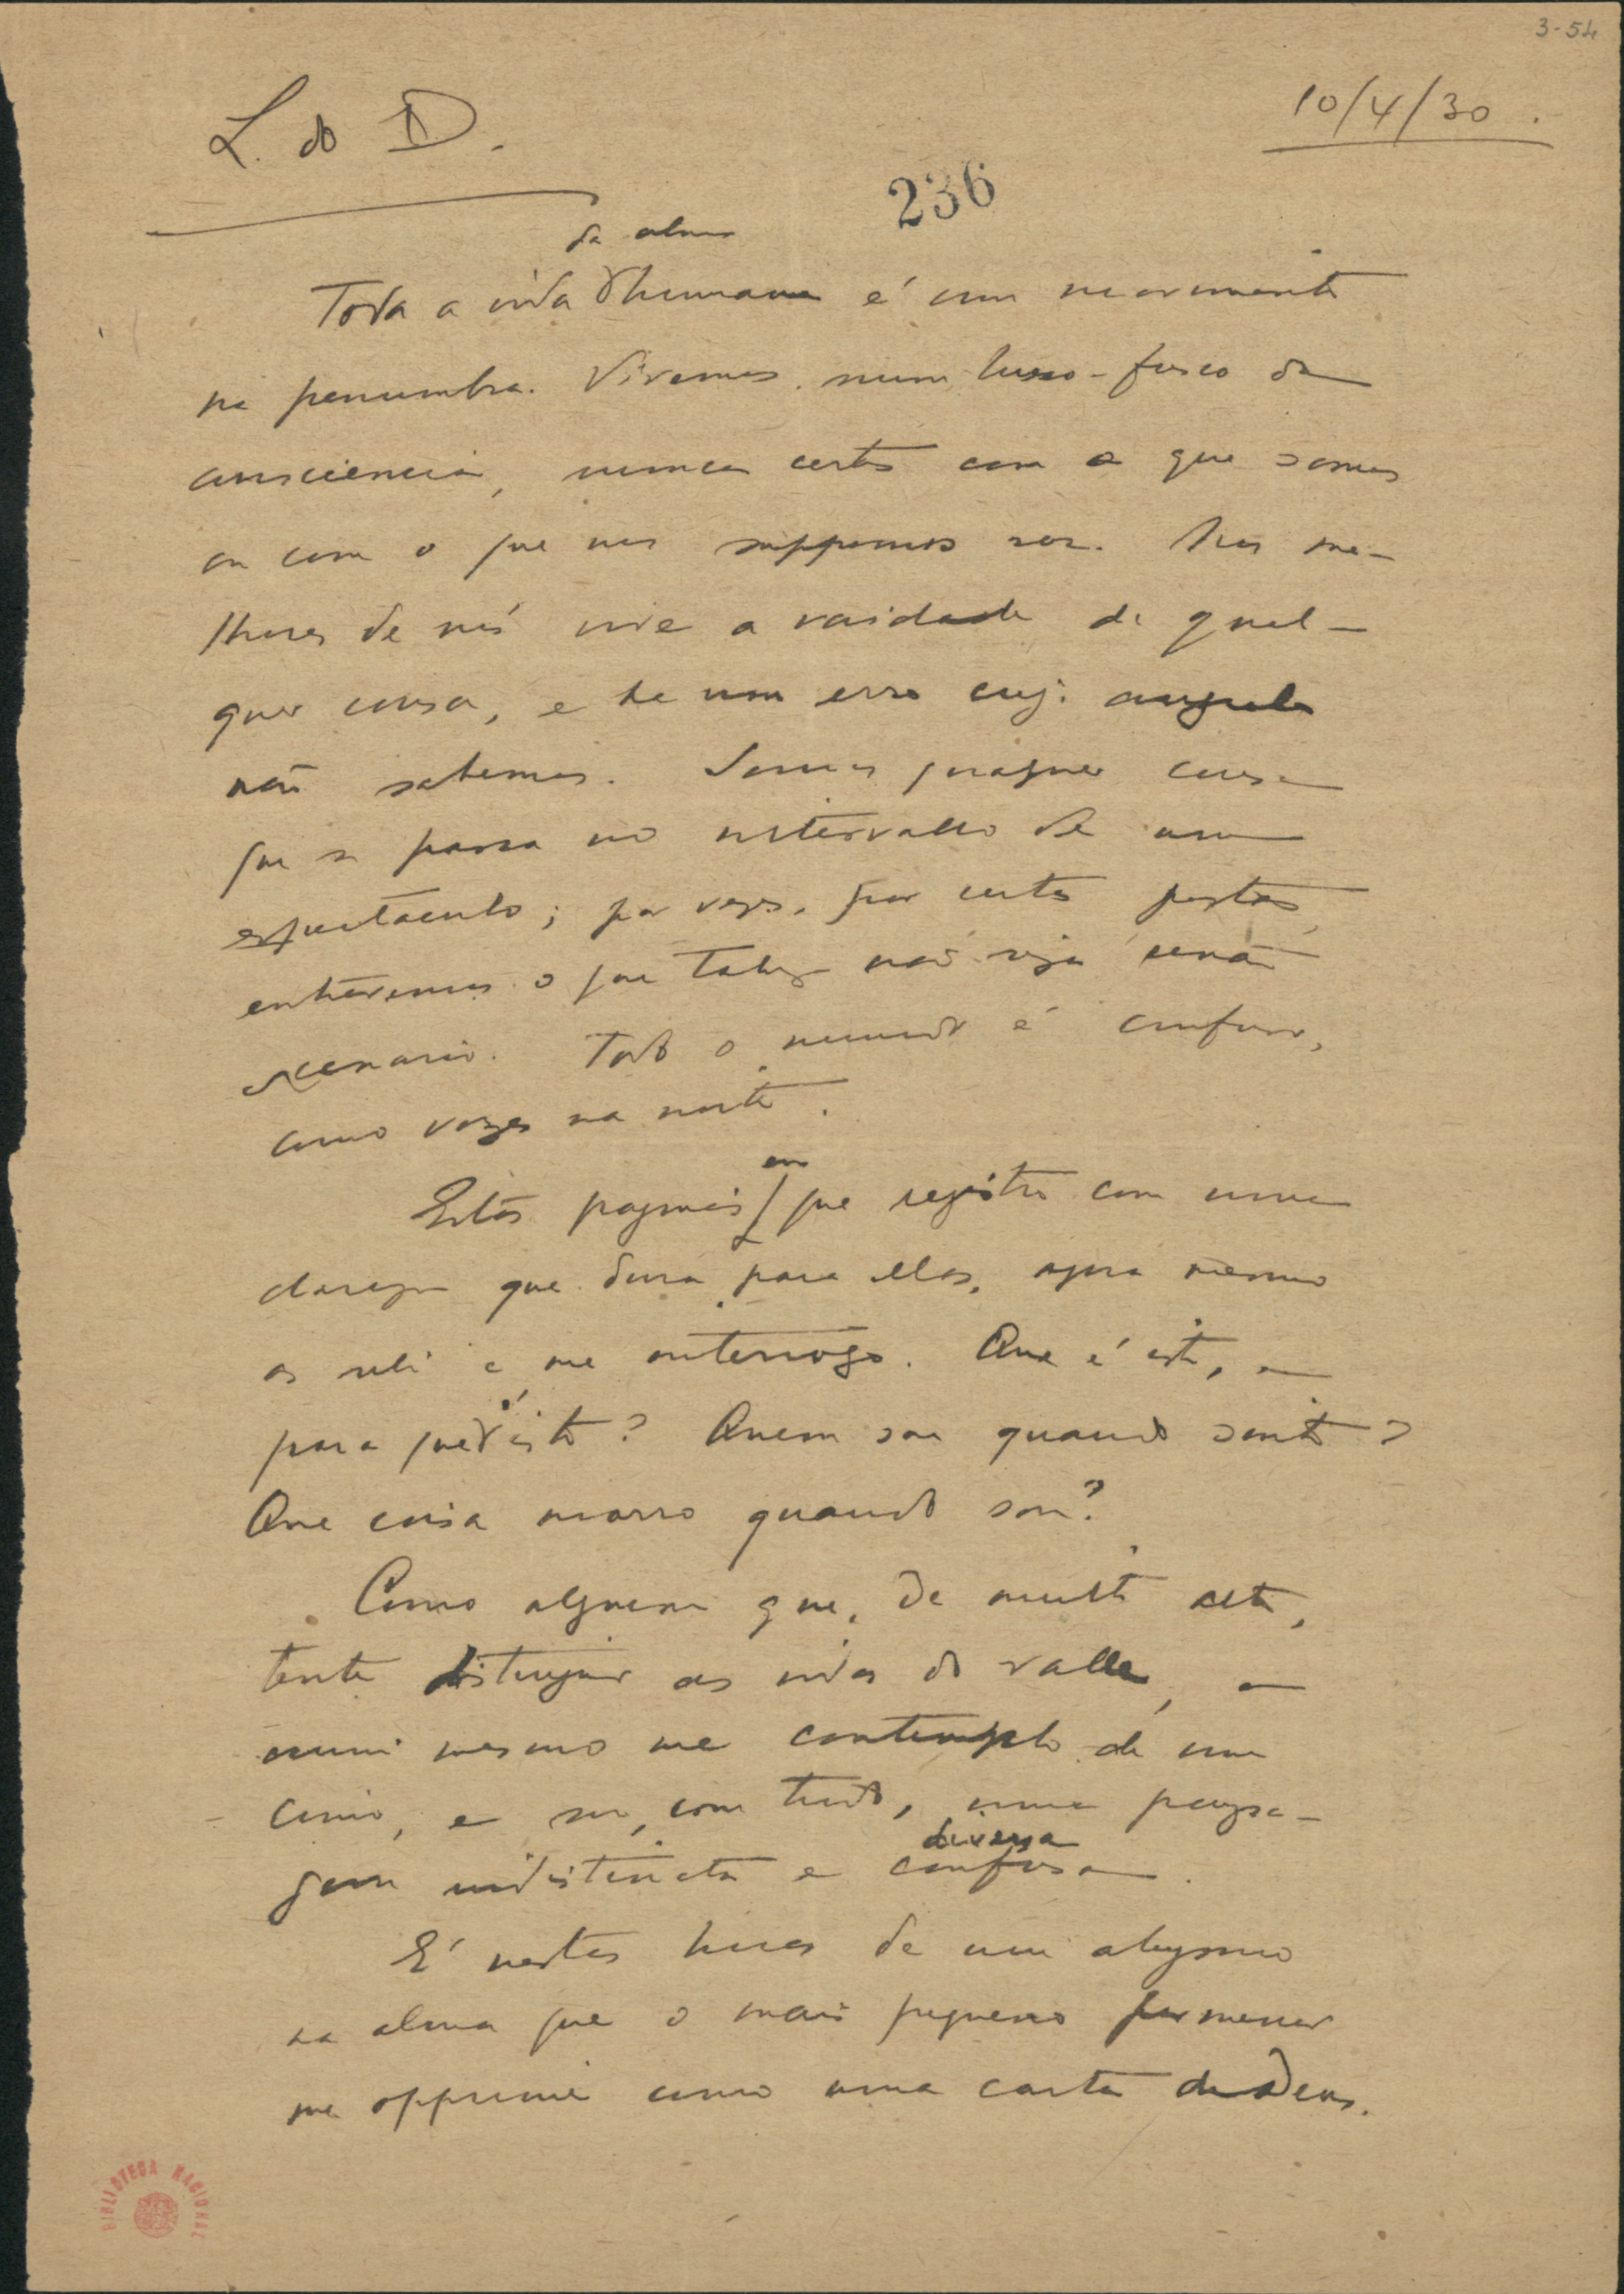 3-54
L. do D.
10/4/30.
236
da alma
Toda a vida humana é um movimento
na penumbra. Vivemos, num lusco-fusco da
consciencia, nunca certos com o que somos
ou com o que nos suppomos ser. Nos me-
lhores de nós vive a vaidade de qual-
quer cousa, e ha um erro cujo angulo
não sabemos. Somos qualquer cousa
que se passa no intervallo de um
espectaculo; por vezes, por certas portas,
entrevemos o que talvez não seja senão
scenario. Todo o mundo é confuso,
como vozes na noite.
em
Estas paginas, que registro com uma
clareza que dura para ellas, agora mesmo
as reli e me interrogo. Que é isto, e
para que é isto? Quem sou quando sinto?
Que coisa morro quando sou?
Como alguem que, de muito alto,
tente distinguir as vidas do valle, a
mim mesmo me contemplo de um
cimo, e sou, com tudo, uma paysa-
diversa
gem indistincta e confusa.
É nestas horas de um abysmo
na alma que o mais pequeno pormenor
me opprime como uma carta de adeus.
BIBLIOTECA NACIONAL